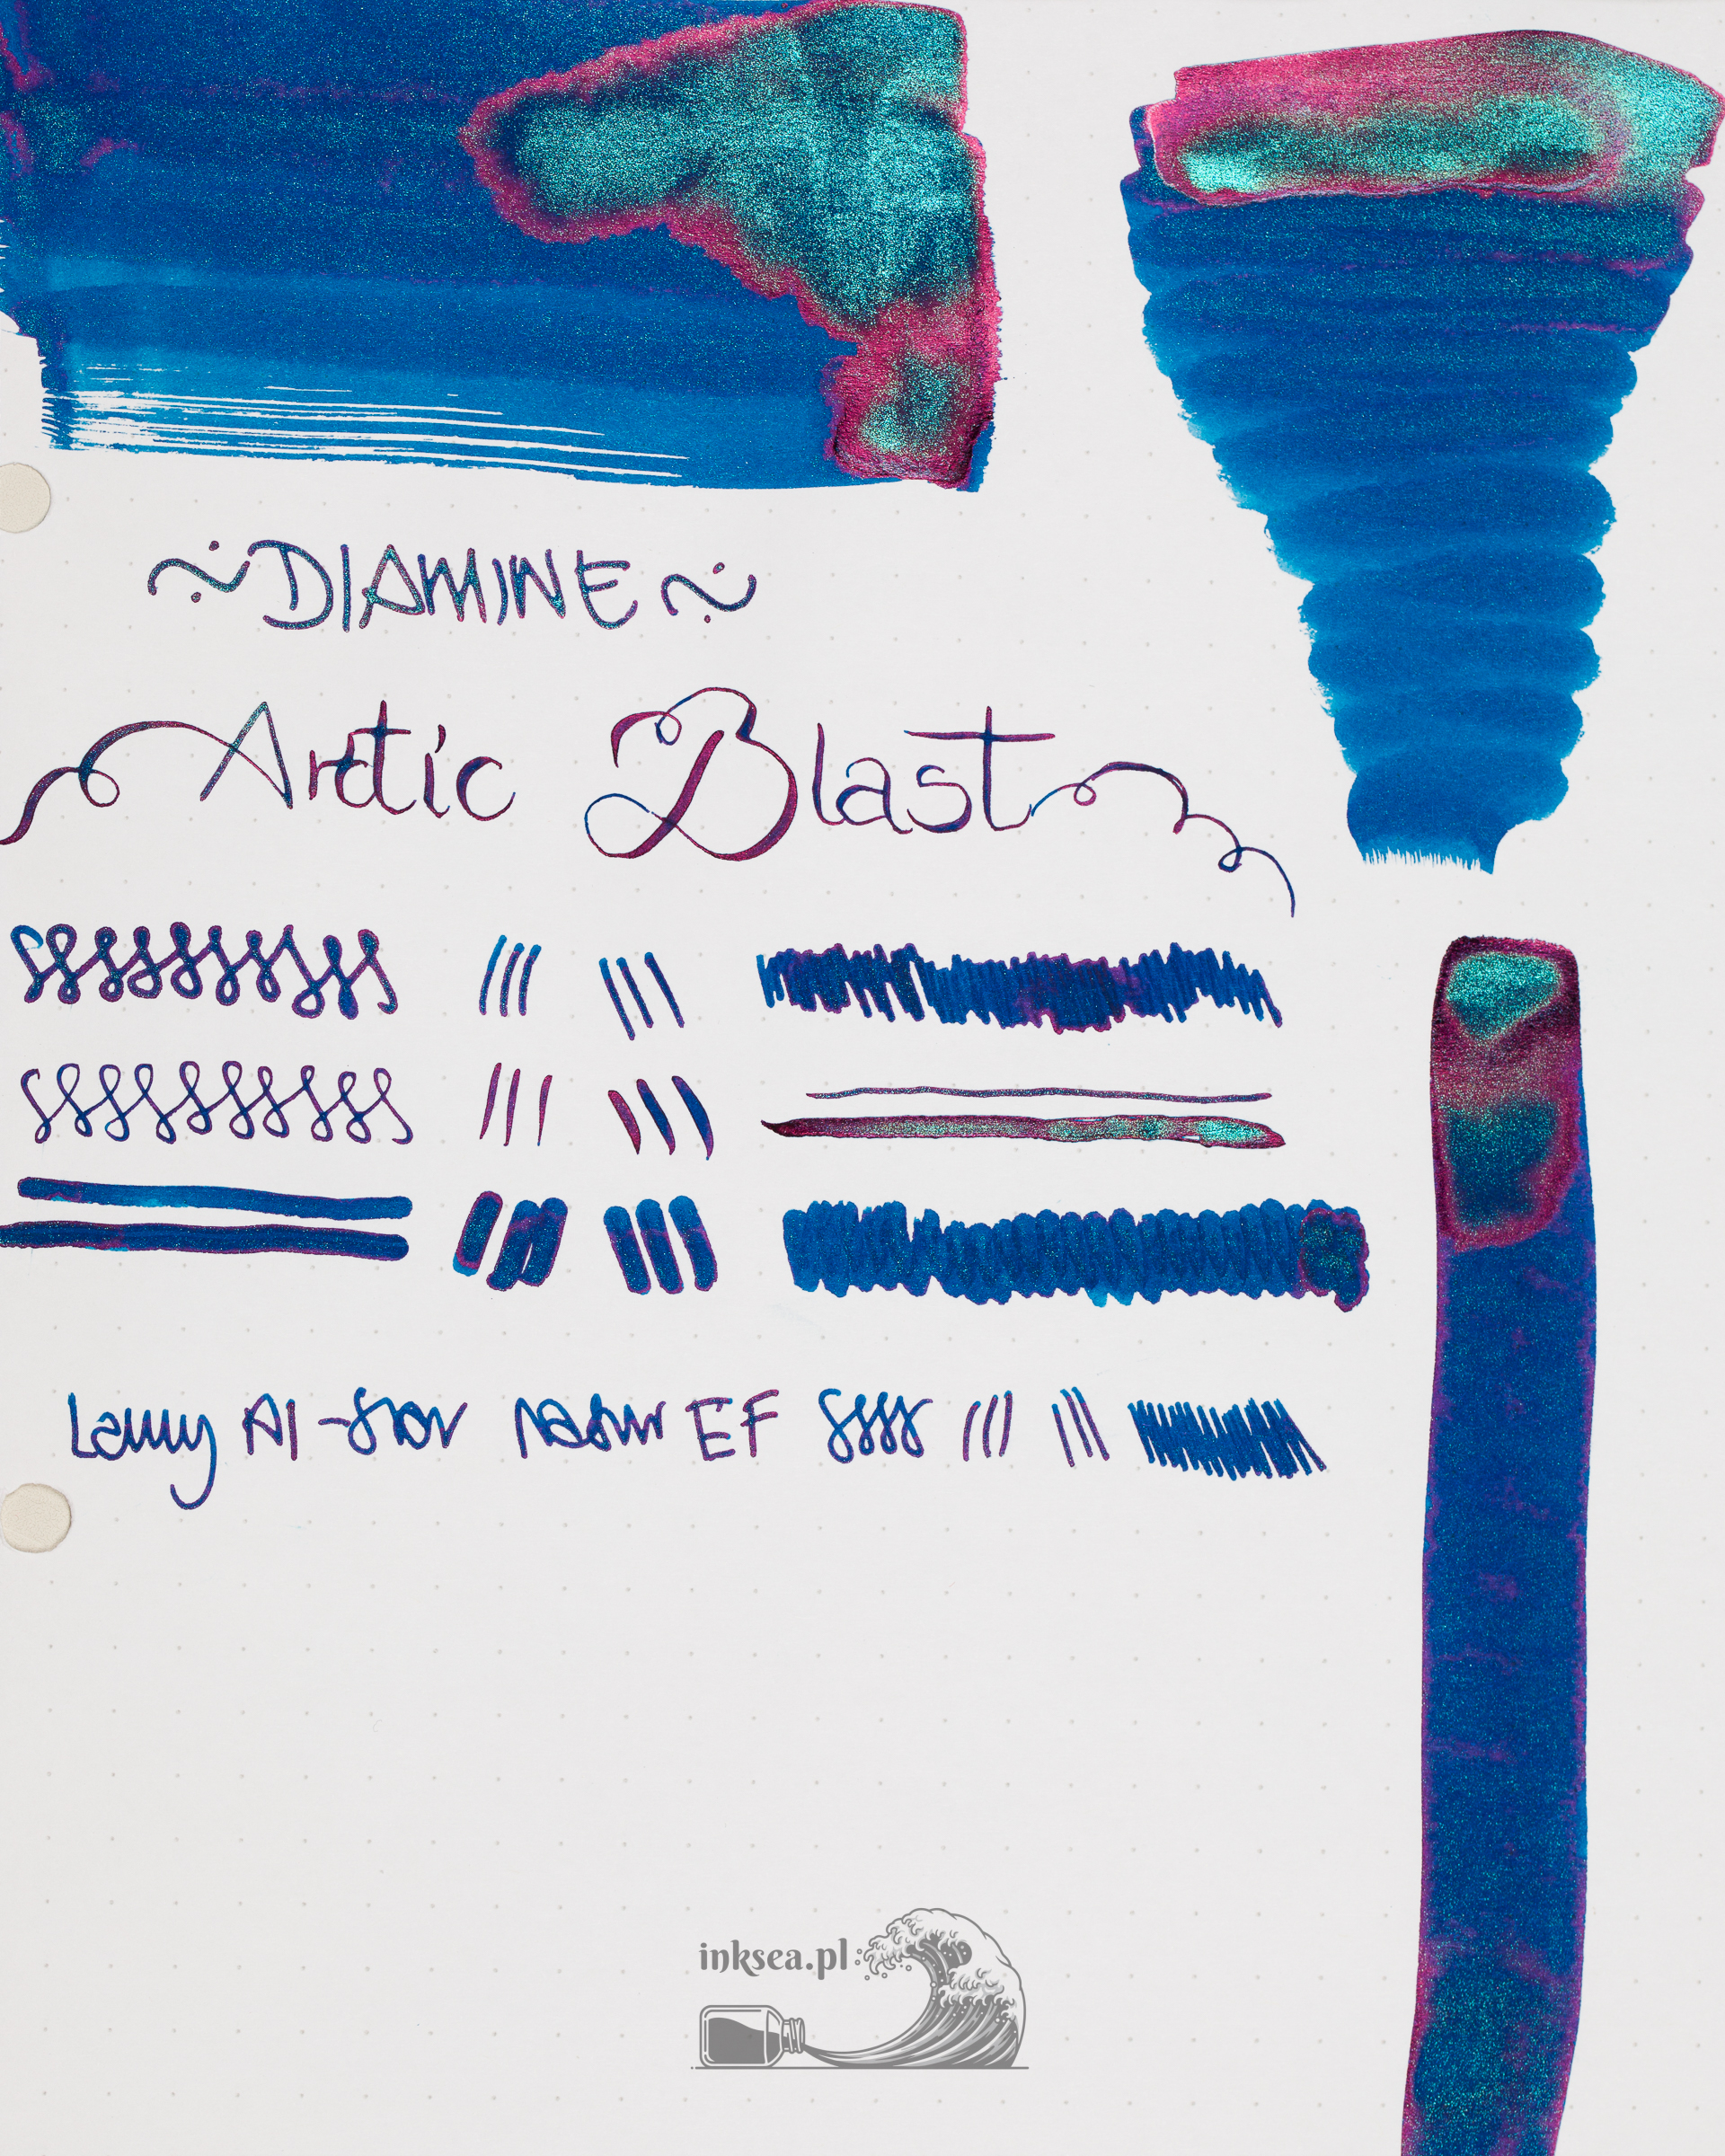 ~DIAMINE~
Arctic Blast
Lamy Al-star EF
inksea.pl